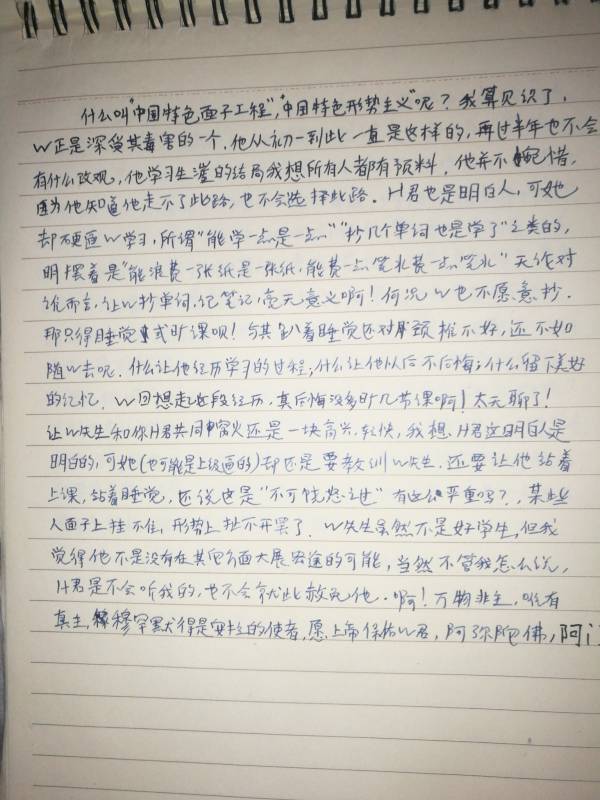 什么叫"中国特色面子工程","中国特色形势主义"呢？我算见识了，
W正是深受其毒害的一个，他从初一到此一直是这样的，再过半年也不会
有什么改观，他学习生涯的结局我想所有人都有预料。他并不惋惜，
因为他知道他走不了此路，也不会选择此路。H君也是明白人，可她
却硬逼W学习，所谓"能学一点是一点""抄几个单词也是学了"之类的，
明摆着是"能浪费一张纸是一张纸，能费一点笔水费一点笔水"天作对
谁而言，让W抄单词，记笔记毫无意义啊！何况W也不愿意抄．
那只得睡觉或旷课呗！与其趴着睡觉还对颈椎不好，还不如
随W去呢．什么让他经历学习的过程；什么让他以后不后悔；什么留下美好
的记忆．W回想起这段经历，真后悔没多旷几节课啊！太无聊了！
让W先生和你H君共同窝火还是一块高兴，轻快，我想，H君这明白人是
明白的，可她(也可能是上级逼的)却还是要教训W先生．还要让他站着
上课，站着睡觉，还说也是"不可饶恕之过"有这么严重吗？，某些
人面子上挂不住，形势上扯不开罢了．W先生虽然不是好学生，但我
觉得他不是没有在其它方面大展宏途的可能，当然不管我怎么说，
H君是不会听我的，也不会就此赦免他．啊！万物非主，唯有
真主，穆罕默得是安拉的使者，愿上帝保佑W君，阿弥陀佛，阿门